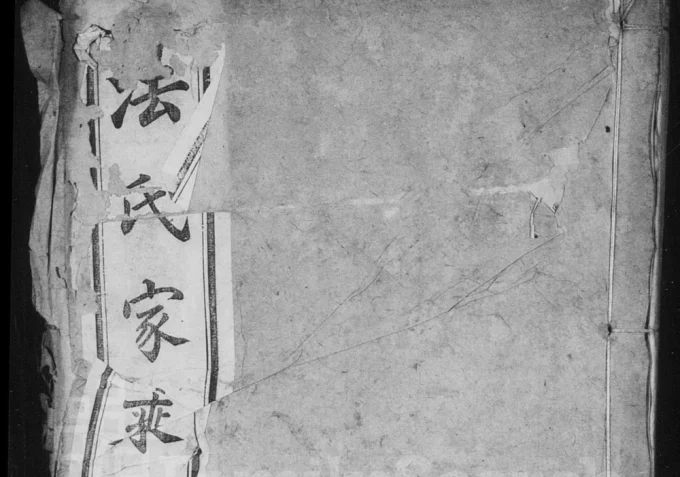 法氏家乘